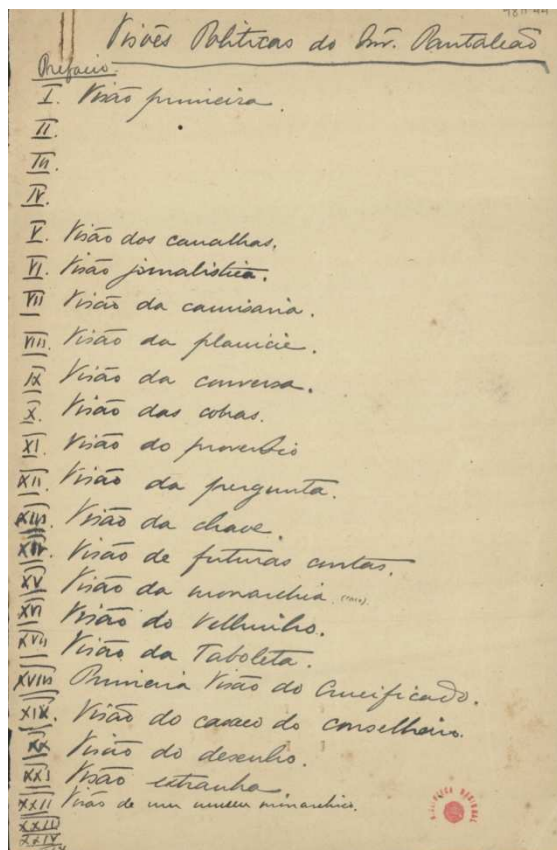 Visões Politicas do Snr. Pantaleão
Prefacio
I. Visão primeira.
II.
III.
IV.
V. Visão dos canalhas.
VI. Visão jornalistica.
VII Visão da camisaria.
VIII. Visão da planicie.
IX Visão da conversa.
X. Visão das cobras.
XI. Visão do proverbio
XII. Visão da pergunta.
XIII. Visão da chave.
XIV. Visão de futuras contas.
XV Visão da monarchia
XVI Visão do Velhinho.
XVII Visão da Taboleta.
XVIII Primeira Visão do Crucificado.
XIX. Visão do casaco do conselheiro.
XX Visão do desenho.
XXI Visão extranha.
XXII Visão de um museu monarchico.
XXIII
XXIV